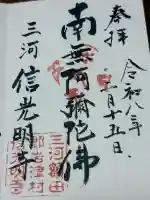 奉拝
令和八年
月十五日
南無阿彌陀佛
三河
信光明寺